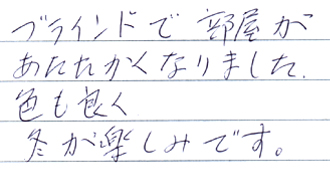 ブラインドで部屋が
あたたかくなりました.
色も良く
冬が楽しみです。